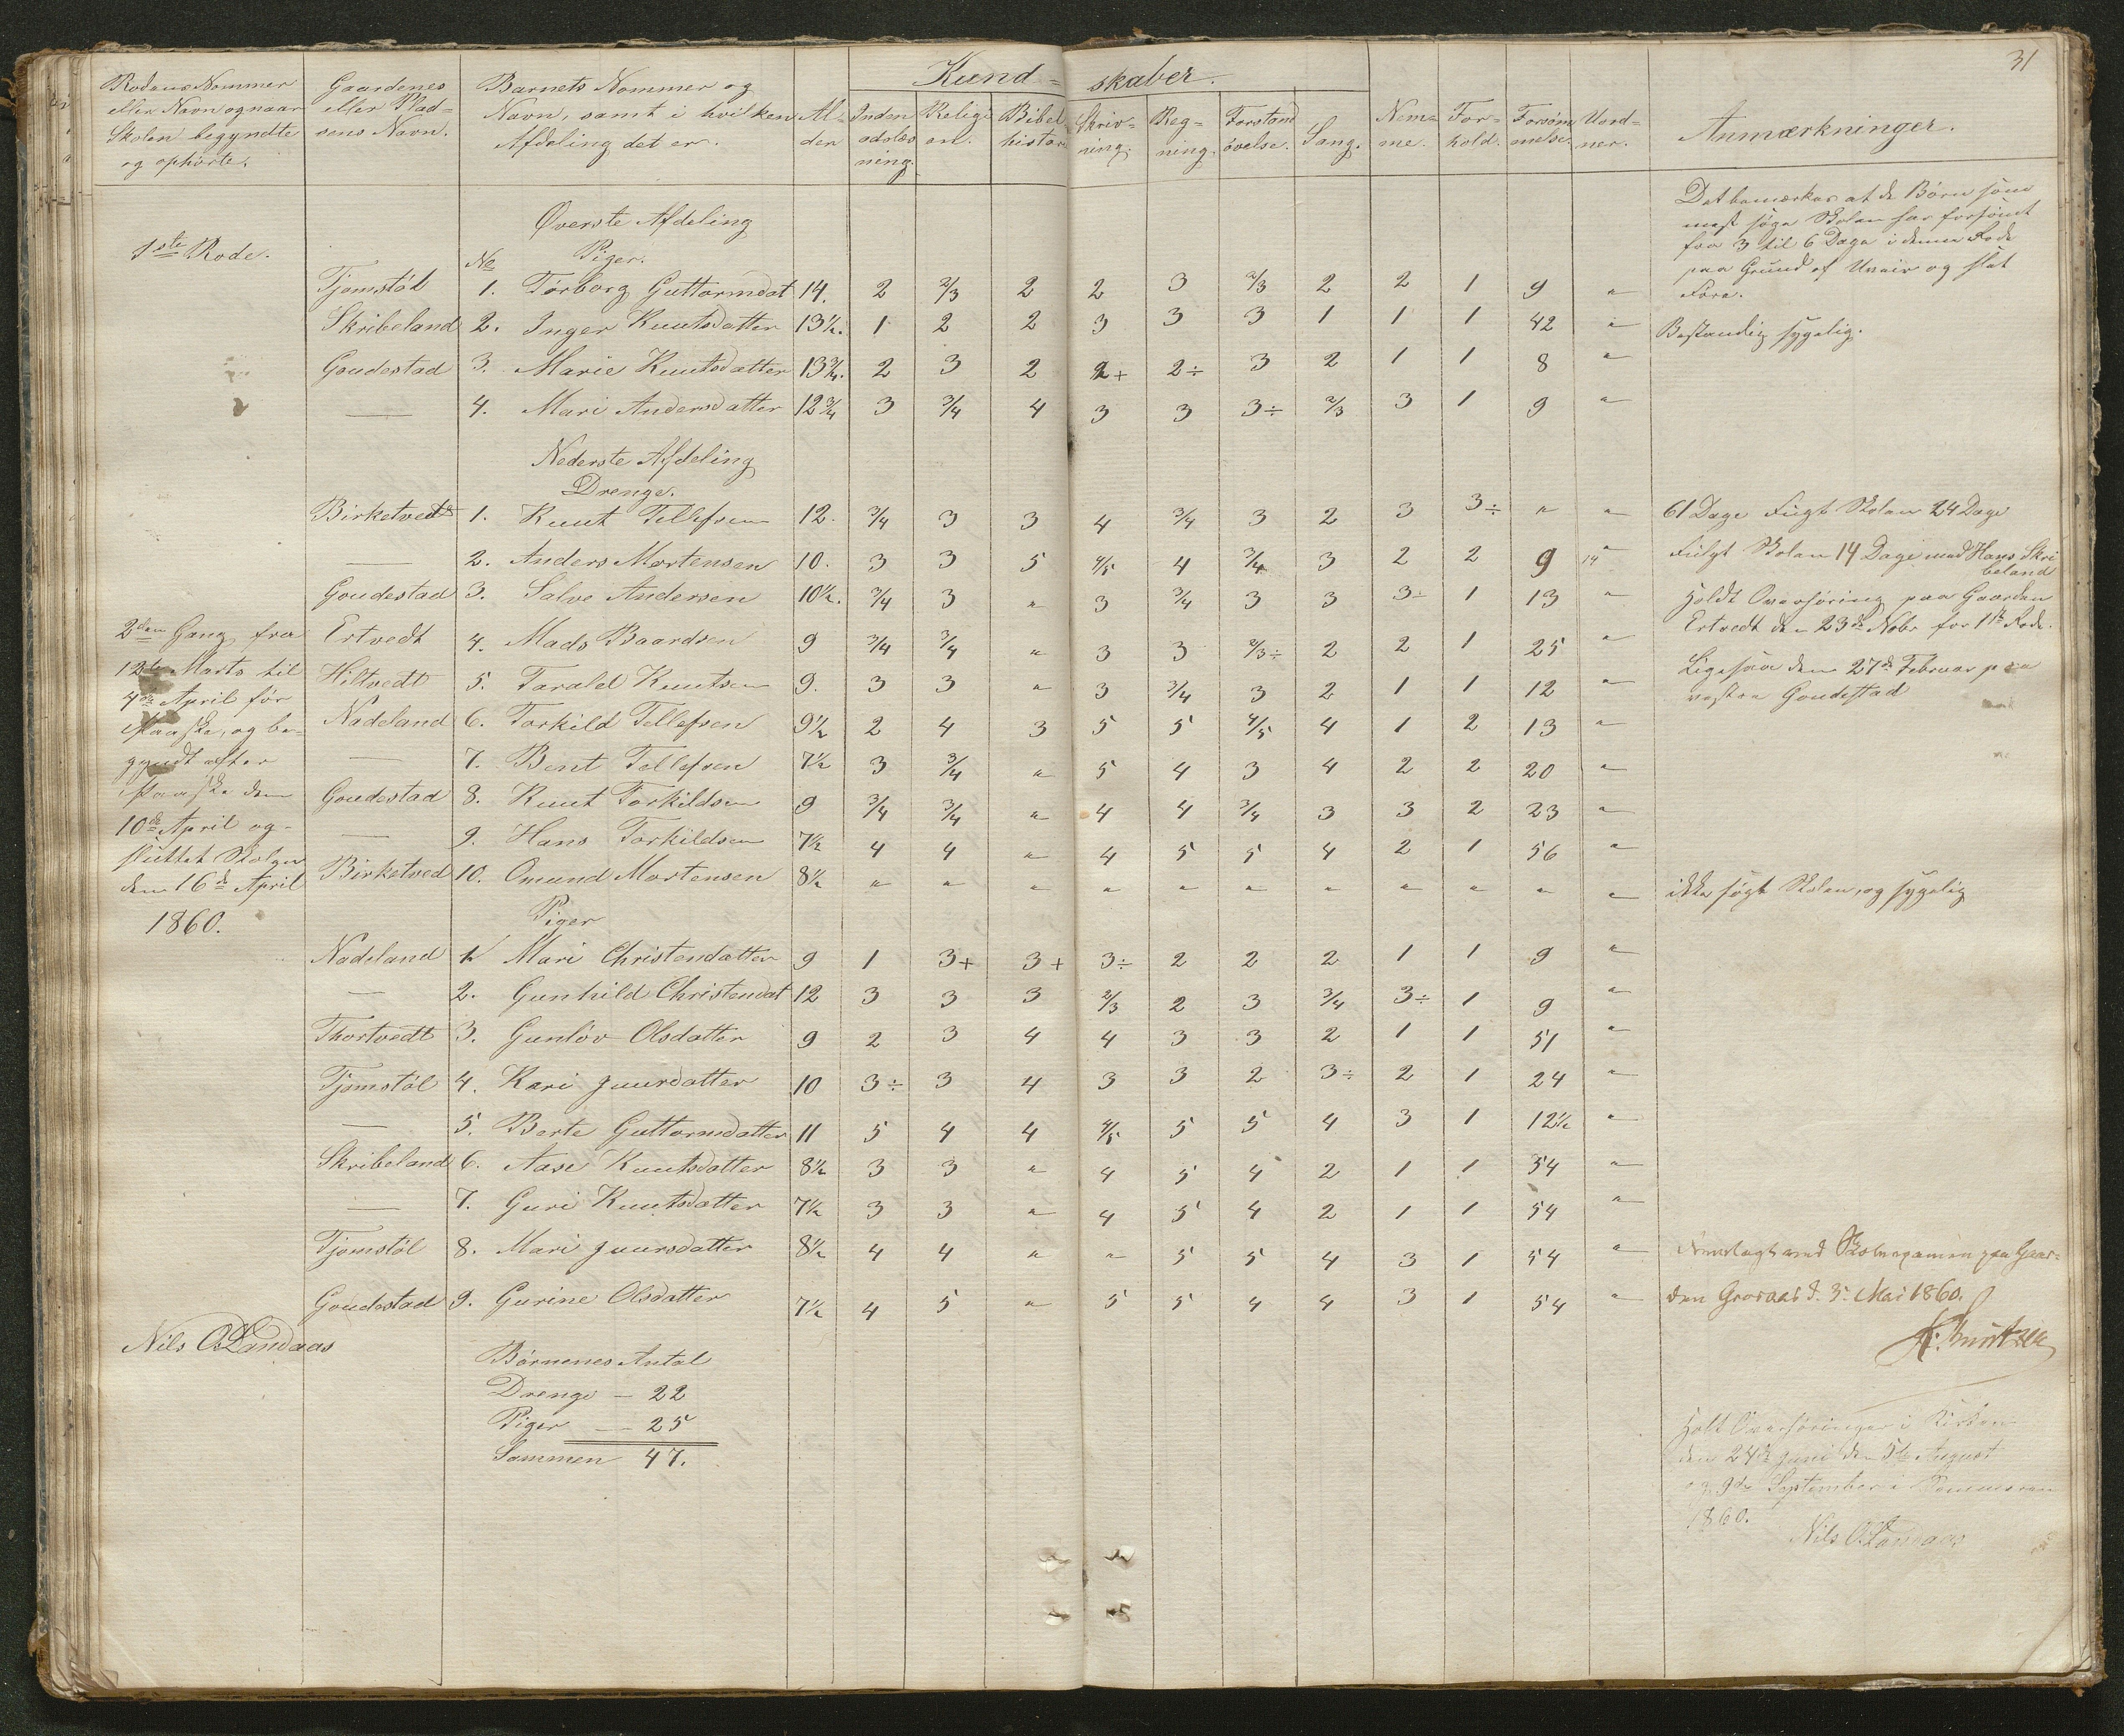 31
Kund= skaber.
Rodens Nommer eller Navn og naar Skolen begyndte og ophørte.
Gaardenes eller Plad=sens Navn.
Barnets Nommer og Navn, samt i hvilken Afdeling det er.
Al=der
Inden adslæsning.
Religion.
Bibelhistorie
Skriv=ning.
Reg=ning.
Forstandsøvelse.
Sang.
Nem=me.
For=hold.
Forsømmelse.
Anmærkninger.
Øverste Afdeling
1ste Rode.
No Piger.
Tjomstøl 1. Torborg Guttormdat 14. 2 2/3 2 2 3 2/3 2 2 1 9 "
Skribeland 2. Inger Knutsdatter 13½. 1 2 2 3 3 3 1 1 1 42 " Bestandig sygelig.
Goudestad 3. Marie Knutsdatter 13¾. 2 3 2 2+ 2÷ 3 2 1 1 8 "
— 4. Mari Andersdatter 12¾ 3 3/4 4 3 3 3÷ 2/3 3 1 9 "
Det bemærkes at de Børn som
mest søge Skolen har forsømt
fra 3 til 6 Dage i denne Rode
paa Grund af Uveir og slet
Føre.
Nederste Afdeling
Drenge.
Birketvedt 1. Knut Tellefsen 12. 3/4 3 3 4 3/4 3 2 3 3÷ " " 61 Dage Søgt Skolen 24 Dage
— 2. Anders Mortensen 10. 3 3 5 4/5 4 3/4 3 2 2 9 14 " Fulgt Skolen 14 Dage med Hans Skribeland
Goudestad 3. Salve Andersen 10½. 3/4 3 " 3 3/4 3 3 3÷ 1 13 " Holdt Overhøring paa Gaarden
Ertvedt 4. Mads Baardsen 9 3/4 3/4 " 3 3 2/3÷ 2 2 1 25 " Ertvedt den 23de Nobr for 1ste Rode.
Hiltvedt 5. Tarald Knutsen 9. 3 3 " 3 3/4 3 2 1 1 12 " Ligesaa den 27de Februar paa
Nadeland 6. Torkild Tellefsen 9½ 2 4 3 5 5 4/5 4 1 2 13 " vestre Goudestad
— 7. Bent Tellefsen 7½ 3 3/4 " 5 4 3 4 2 2 20 "
Goudestad 8. Knut Torkildsen 9 3/4 3/4 " 4 4 3/4 3 3 2 23 "
— 9. Hans Torkildsen 7½ 4 4 " 4 5 5 4 2 1 56 "
Birketved 10. Omund Mortensen 8½ " " " " " " " " " " " ikke søgt Skolen, og sygelig
2den Gang fra
12te Marts til
4de April før
Paaske, og be=
gyndt efter
Paaske den
10de April og
sluttet Skolen
den 16de April
1860.
Piger
Nadeland 1. Mari Christendatter 9 1 3+ 3+ 3÷ 2 2 2 1 1 9 "
— 2. Gunhild Christendat 12 3 3 3 2/3 2 3 3/4 3÷ 1 9 "
Thortvedt 3. Gunløv Olsdatter 9 2 3 4 4 3 3 2 1 1 51 "
Tjomstøl 4. Kari Juursdatter 10 3÷ 3 4 3 3 2 3÷ 2 1 24 "
— 5. Berte Guttormdatter 11 5 4 4 4/5 5 5 4 3 1 12½ "
Skribeland 6. Aase Knutsdatter 8½ 3 3 " 4 5 4 2 1 1 54 "
— 7. Guri Knutsdatter 7½ 3 3 " 4 5 4 2 1 1 54 "
Tjomstøl 8. Mari Juursdatter 8½ 4 4 " " 5 5 4 3 1 54 " Fremlagt ved Skoleexamen paa Gaar=
Goudestad 9. Gurine Olsdatter 7½ 4 5 " 5 5 4 4 3 1 54 " den Groraas d. 3. Mai 1860.
Nils O. Landaas
Børnenes Antal
Drenge — 22
Piger — 25
Sammen 47.
Holt Overhøringer i Kirken
den 24de Juni den 5te August
og 9de September i Sommeren
1860.
Nils O. Landaas